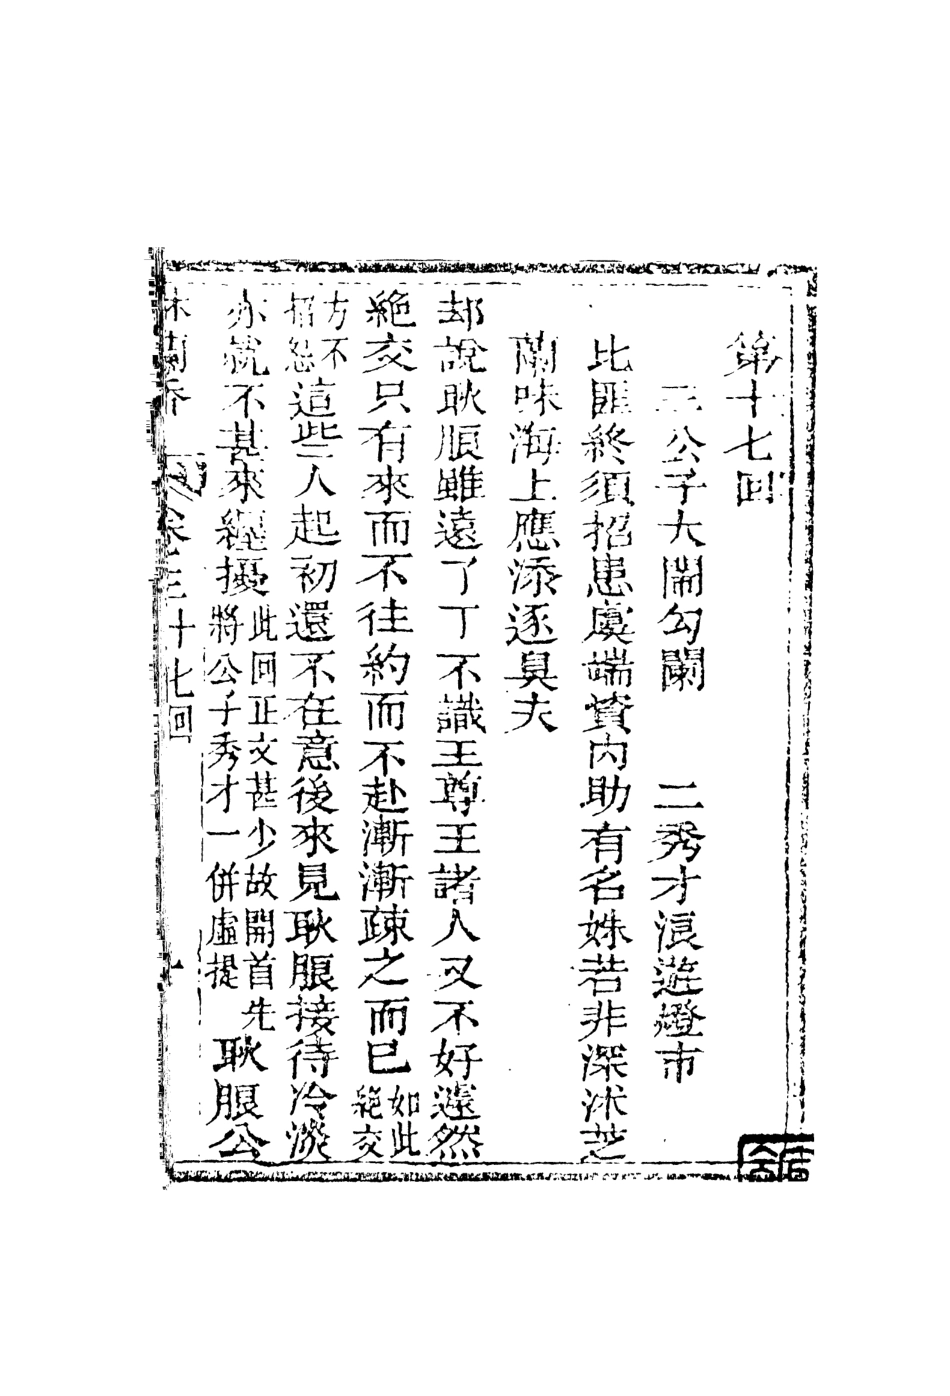 第十七回
三公子大鬧勾闌　二秀才浪遊燈市
比匪終須招患虞端資内助有名姝若非深沐芝
蘭味海上應添逐臭夫
却說耿朖雖遠了丁不識王尊王諸人又不好遽然
絶交只有來而不往約而不赴漸漸疎之而已如此絶交
方不招怨這些人起初還不在意後來見耿朖接待冷淡
亦就不甚來纒擾此回正文甚少故開首先將公子秀才一併虛提耿朖公
林蘭香　卷三十七回　一